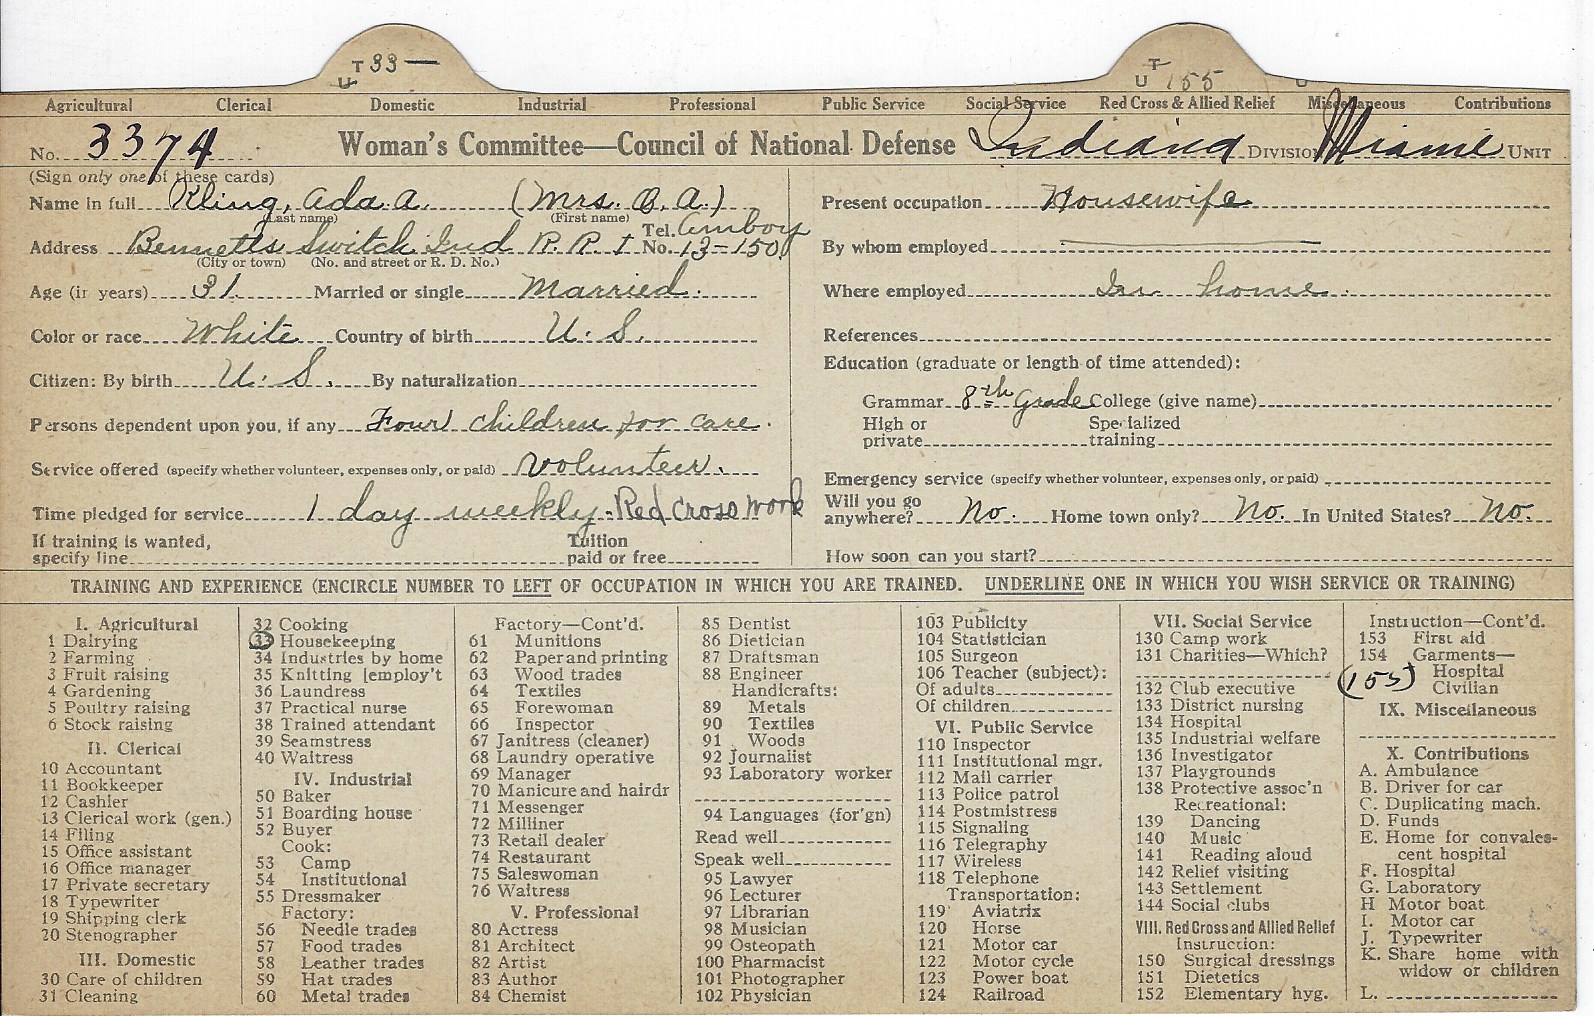 T 33— T
U U 155
Agricultural Clerical Domestic Industrial Professional Public Service Social Service Red Cross & Allied Relief Miscellaneous Contributions
No. 3374 Woman's Committee—Council of National Defense Indiana DIVISION Miami UNIT
(Sign only one of these cards)
Name in full Kling, Ada A. (Mrs. O. A.)
(Last name) (First name)
Address Bennetts Switch Ind R. R. 1 Tel. No. Amboy 13-150
(City or town) (No. and street or R. D. No.)
Age (in years) 31. Married or single Married.
Color or race White Country of birth U. S.
Citizen: By birth U. S. By naturalization
Persons dependent upon you, if any Four children for care.
Service offered (specify whether volunteer, expenses only, or paid) Volunteer.
Time pledged for service 1 day weekly - Red Cross Work
If training is wanted, specify line Tuition paid or free
Present occupation Housewife
By whom employed
Where employed In home.
References
Education (graduate or length of time attended):
Grammar 8th Grade College (give name)
High or private Specialized training
Emergency service (specify whether volunteer, expenses only, or paid)
Will you go anywhere? No. Home town only? No. In United States? No.
How soon can you start?
TRAINING AND EXPERIENCE (ENCIRCLE NUMBER TO LEFT OF OCCUPATION IN WHICH YOU ARE TRAINED. UNDERLINE ONE IN WHICH YOU WISH SERVICE OR TRAINING)
I. Agricultural
1 Dairying
2 Farming
3 Fruit raising
4 Gardening
5 Poultry raising
6 Stock raising
II. Clerical
10 Accountant
11 Bookkeeper
12 Cashier
13 Clerical work (gen.)
14 Filing
15 Office assistant
16 Office manager
17 Private secretary
18 Typewriter
19 Shipping clerk
20 Stenographer
III. Domestic
30 Care of children
31 Cleaning
32 Cooking
33 Housekeeping
34 Industries by home
35 Knitting [employ't
36 Laundress
37 Practical nurse
38 Trained attendant
39 Seamstress
40 Waitress
IV. Industrial
50 Baker
51 Boarding house
52 Buyer
Cook:
53 Camp
54 Institutional
55 Dressmaker
Factory:
56 Needle trades
57 Food trades
58 Leather trades
59 Hat trades
60 Metal trades
Factory—Cont'd.
61 Munitions
62 Paper and printing
63 Wood trades
64 Textiles
65 Forewoman
66 Inspector
67 Janitress (cleaner)
68 Laundry operative
69 Manager
70 Manicure and hairdr
71 Messenger
72 Milliner
73 Retail dealer
74 Restaurant
75 Saleswoman
76 Waitress
V. Professional
80 Actress
81 Architect
82 Artist
83 Author
84 Chemist
85 Dentist
86 Dietician
87 Draftsman
88 Engineer
Handicrafts:
89 Metals
90 Textiles
91 Woods
92 Journalist
93 Laboratory worker
94 Languages (for'gn)
Read well
Speak well
95 Lawyer
96 Lecturer
97 Librarian
98 Musician
99 Osteopath
100 Pharmacist
101 Photographer
102 Physician
103 Publicity
104 Statistician
105 Surgeon
106 Teacher (subject):
Of adults
Of children
VI. Public Service
110 Inspector
111 Institutional mgr.
112 Mail carrier
113 Police patrol
114 Postmistress
115 Signaling
116 Telegraphy
117 Wireless
118 Telephone
Transportation:
119 Aviatrix
120 Horse
121 Motor car
122 Motor cycle
123 Power boat
124 Railroad
VII. Social Service
130 Camp work
131 Charities—Which?
132 Club executive
133 District nursing
134 Hospital
135 Industrial welfare
136 Investigator
137 Playgrounds
138 Protective assoc'n
Recreational:
139 Dancing
140 Music
141 Reading aloud
142 Relief visiting
143 Settlement
144 Social clubs
VIII. Red Cross and Allied Relief
Instruction:
150 Surgical dressings
151 Dietetics
152 Elementary hyg.
Instruction—Cont'd.
153 First aid
154 Garments—
Hospital
(155) Civilian
IX. Miscellaneous
X. Contributions
A. Ambulance
B. Driver for car
C. Duplicating mach.
D. Funds
E. Home for convales-
cent hospital
F. Hospital
G. Laboratory
H Motor boat
I. Motor car
J. Typewriter
K. Share home with
widow or children
L.